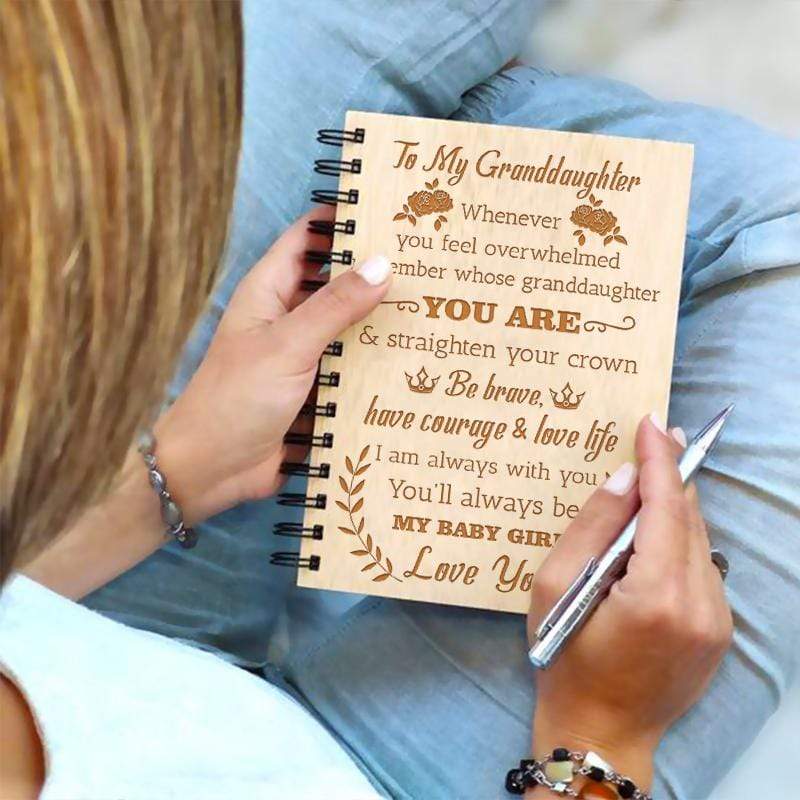 To My Granddaughter
Whenever
you feel overwhelmed
whose granddaughter
YOU ARE
& straighten your crown
Be brave,
have courage & love life
I am always with you
You'll always be
MY BABY GIRL
Love You